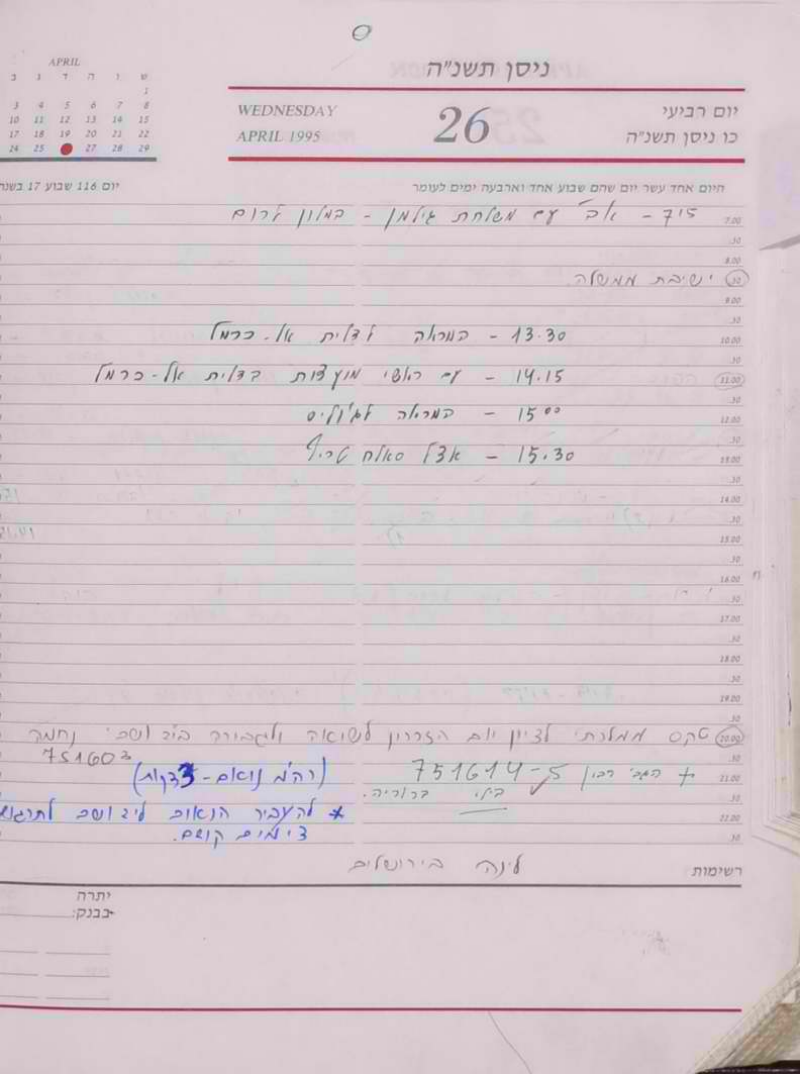 ניסן תשנ"ה
APRIL
ב ג ד ה ו ש
1
3 4 5 6 7 8
10 11 12 13 14 15
17 18 19 20 21 22
24 25 27 28 29
WEDNESDAY
APRIL 1995
26
יום רביעי
כו ניסן תשנ"ה
היום אחד עשר יום שהם שבוע אחד וארבעה ימים לעומר
יום 116 שבוע 17 בשנה
7.00
715 - עם משלחת גילמן - במלון לרום
.30
8.00
.30 ישיבת ממשלה.
9.00
.30
10.00
13.30 - המראה לדלית אל-כרמל
.30
11.00
14.15 - עם ראשי מועצות בדלית אל-כרמל
.30
12.00
15 00 - המראה לג'וליס
.30
13.00
15.30 - אצל סאלח טריף
.30
14.00
.30
15.00
.30
16.00
.30
17.00
.30
18.00
.30
19.00
.30
20.00 טקס ממלכתי לציון יום הזכרון לשואה ולגבורה ביד ושם נחמה
751603
21.00
+ הגב' רבין 751614-5 (רה"מ נואם - 3 דקות)
.30
ברוריה.
* להעביר הנאום ליד ושם
22.00
.30
ימים קודם.
רשימות
לינה בירושלים
יתרה
בבנק: